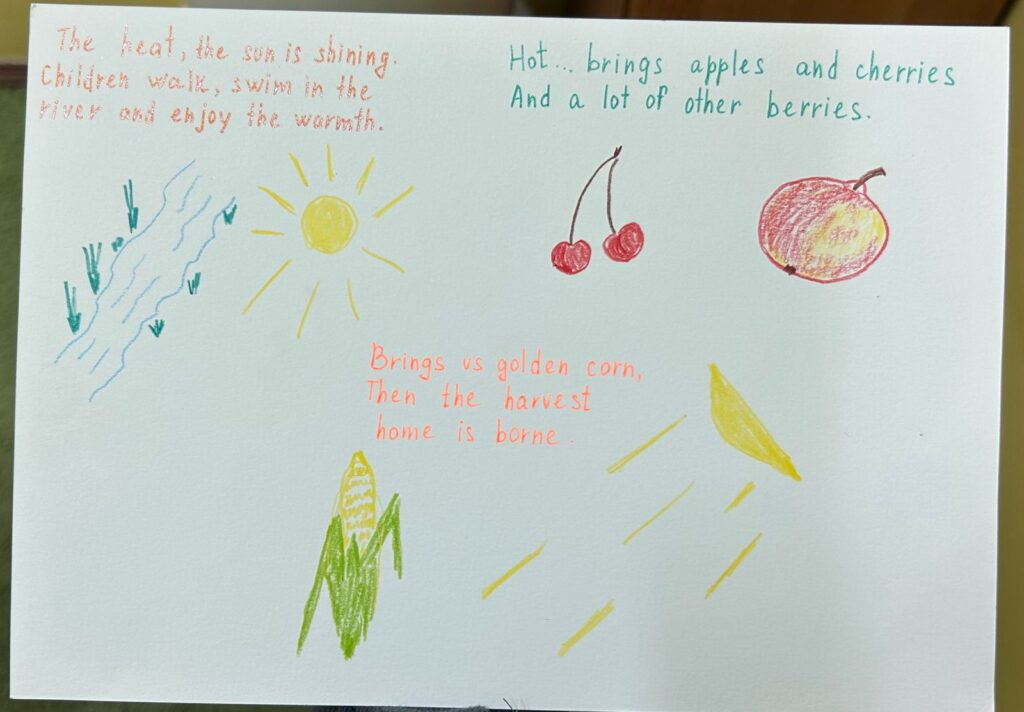 The heat, the sun is shining.
Children walk, swim in the
river and enjoy the warmth.
Hot... brings apples and cherries
And a lot of other berries.
Brings us golden corn,
Then the harvest
home is borne.